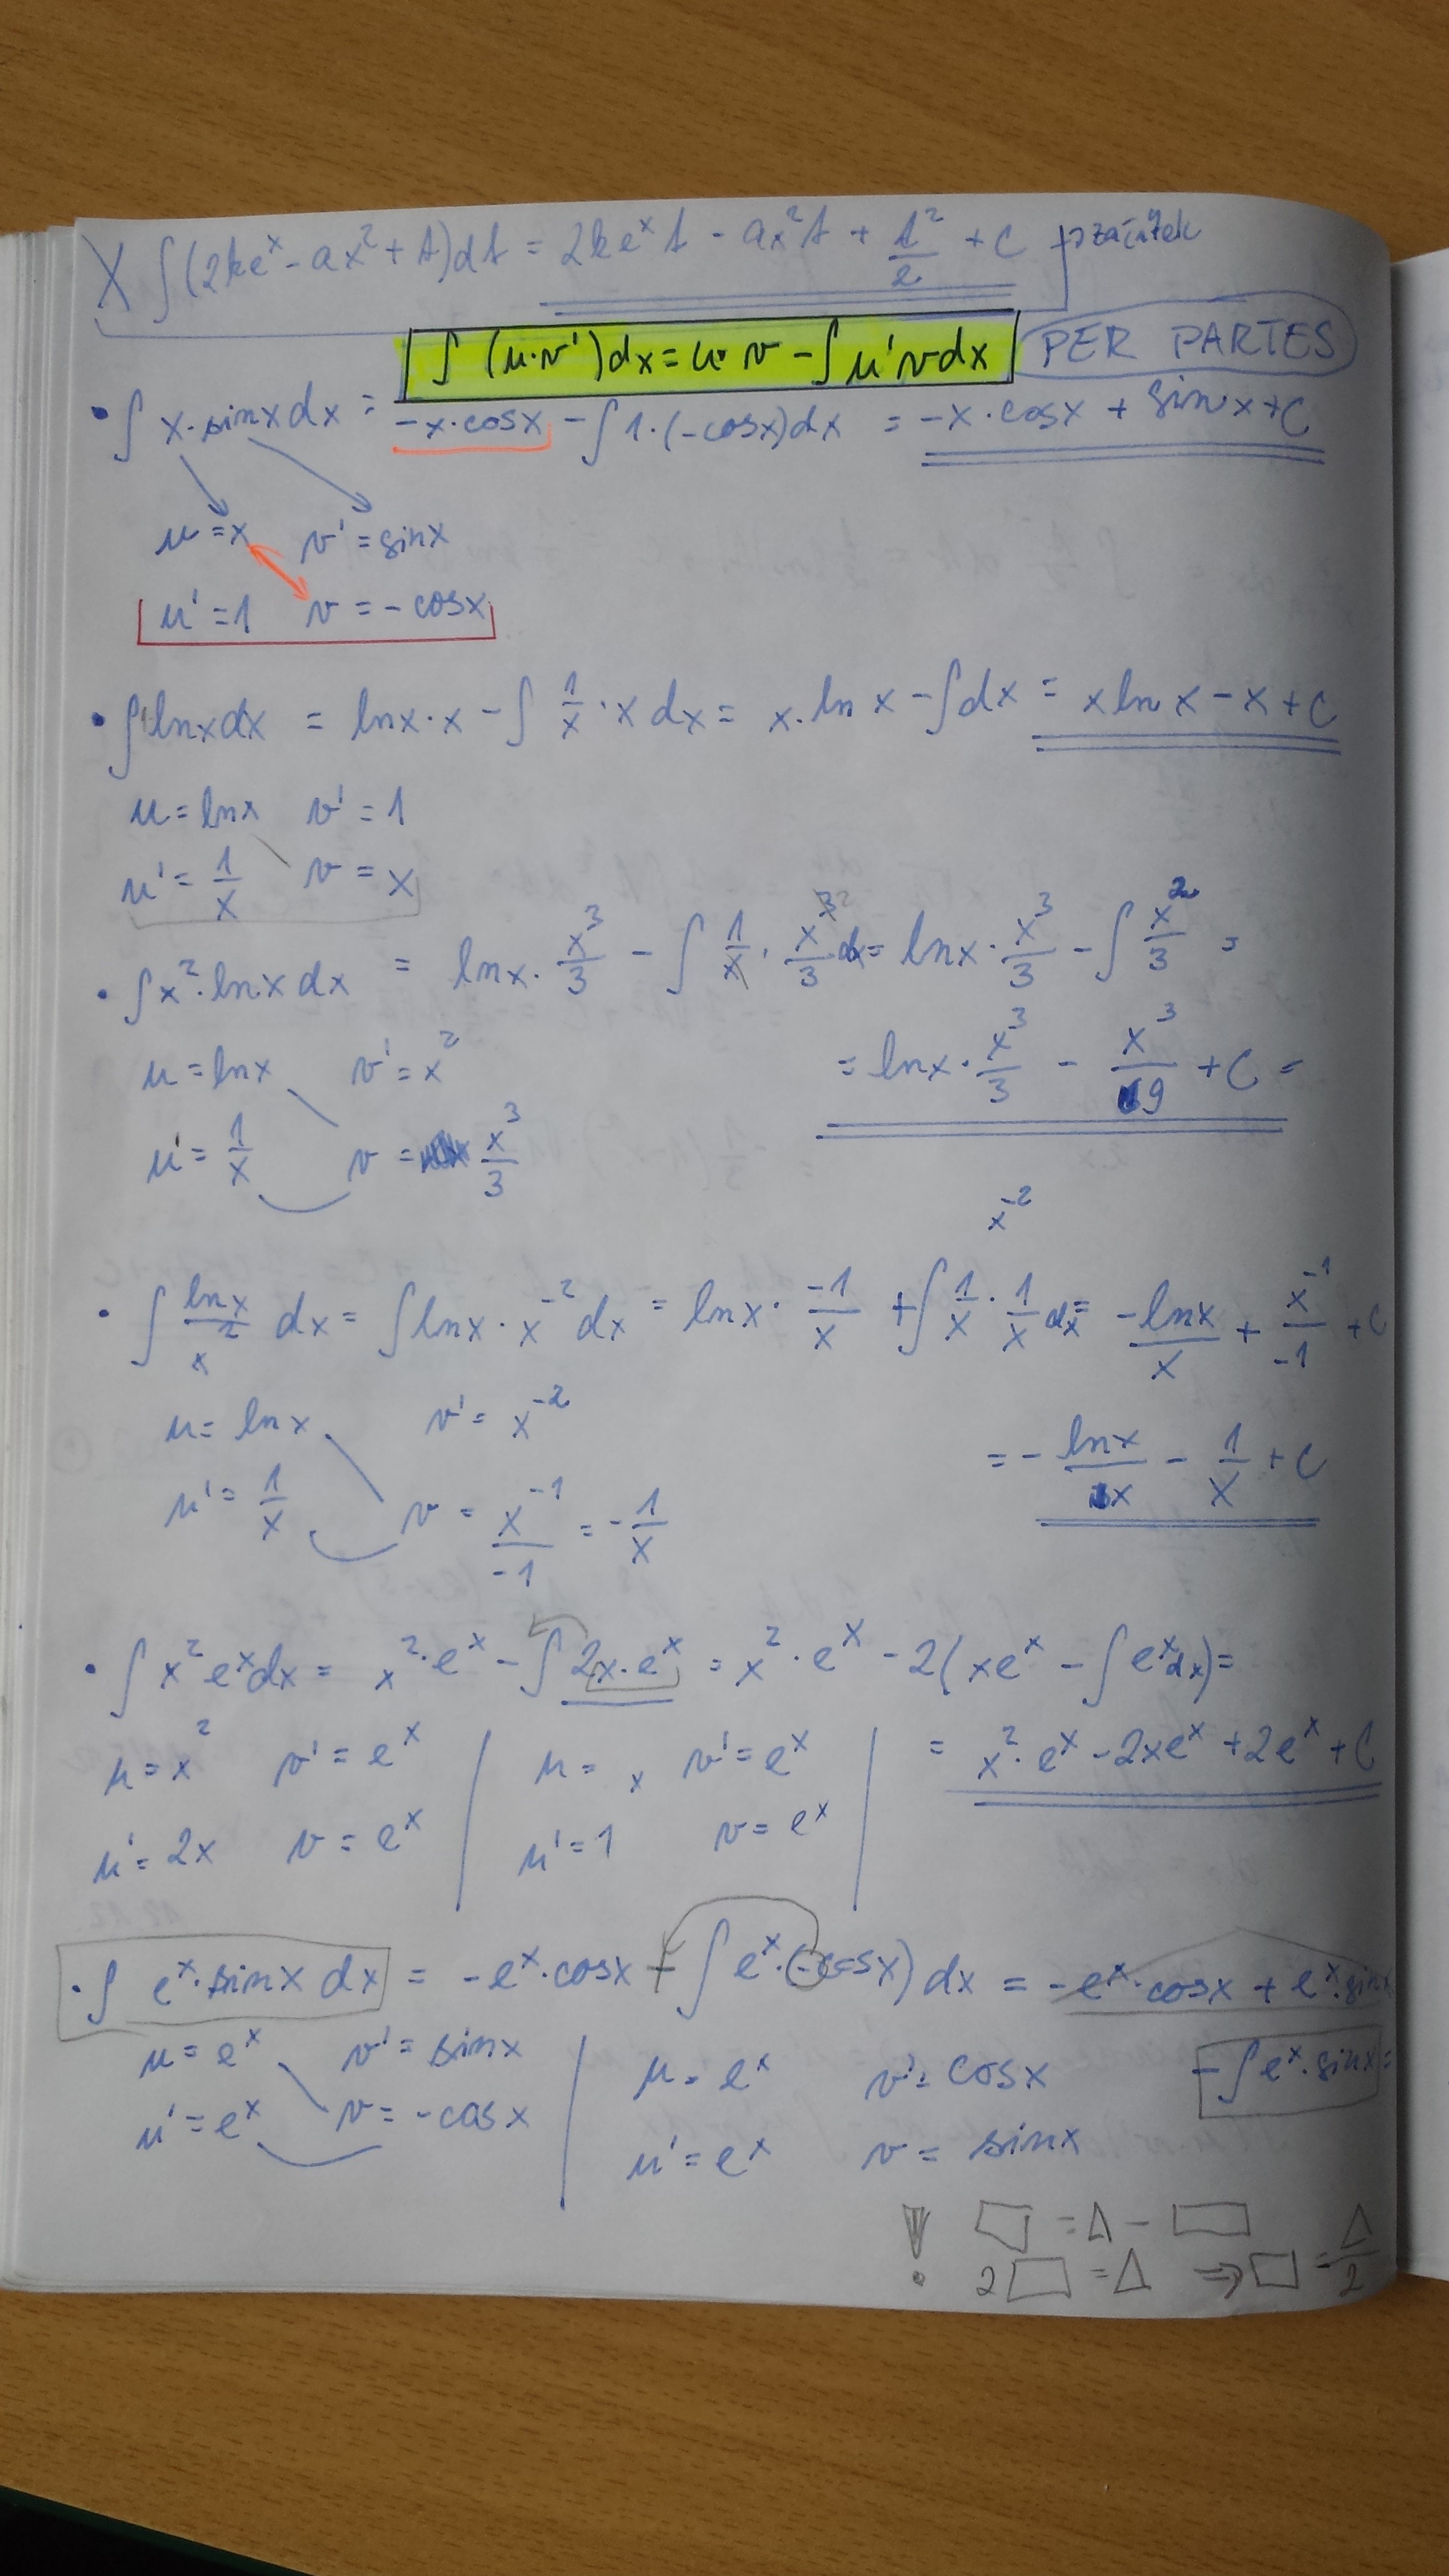 X ∫(2ke^x - ax^2 + t)dt = 2ke^x t - ax^2 t + t^2/2 + C začátek
∫ (u·v')dx = u·v - ∫ u'v dx PER PARTES
• ∫ x·sinx dx = -x·cosx - ∫ 1·(-cosx)dx = -x·cosx + sinx + C
u = x v' = sinx
u' = 1 v = -cosx
• ∫ 1·lnx dx = lnx·x - ∫ 1/x · x dx = x·ln x - ∫dx = x ln x - x + C
u = lnx v' = 1
u' = 1/x v = x
• ∫ x^2·lnx dx = lnx · x^3/3 - ∫ 1/x · x^3/3 dx = lnx · x^3/3 - ∫ x^2/3 =
u = lnx v' = x^2 = lnx · x^3/3 - x^3/9 + C =
u' = 1/x v = x^3/3
x^-2
• ∫ lnx/x^2 dx = ∫ lnx · x^-2 dx = lnx · -1/x + ∫ 1/x · 1/x dx = -lnx/x + x^-1/-1 + C
u = ln x v' = x^-2 = - lnx/x - 1/x + C
u' = 1/x v = x^-1/-1 = -1/x
• ∫ x^2 e^x dx = x^2·e^x - ∫ 2x·e^x = x^2·e^x - 2(xe^x - ∫ e^x dx) =
u = x^2 v' = e^x | u = x v' = e^x | = x^2·e^x - 2xe^x + 2e^x + C
u' = 2x v = e^x | u' = 1 v = e^x |
• ∫ e^x·sinx dx = -e^x·cosx - ∫ e^x·(-cosx) dx = -e^x·cosx + e^x·sinx
u = e^x v' = sinx | u = e^x v' = cosx - ∫ e^x·sinx =
u' = e^x v = -cosx | u' = e^x v = sinx
! □ = Δ - □
2□ = Δ ⇒ □ = Δ/2